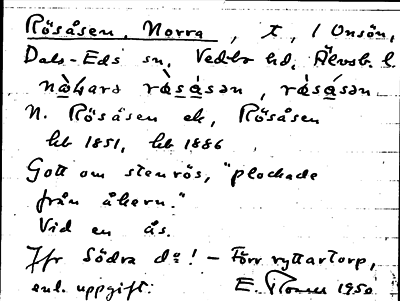 Rösåsen, Norra, t, / Onsön,
Dals-Eds sn, Vedbo hd, Älvsb. l.
nòʟara rø̀såsən, rø̀såsən
N. Rösåsen ek, Rösåsen
hk 1851, hk 1886
Gott om stenrös, "plockade
från åkern."
Vid en ås.
Jfr Södra do! – Förr ryttartorp,
enl. uppgift. E. 1950